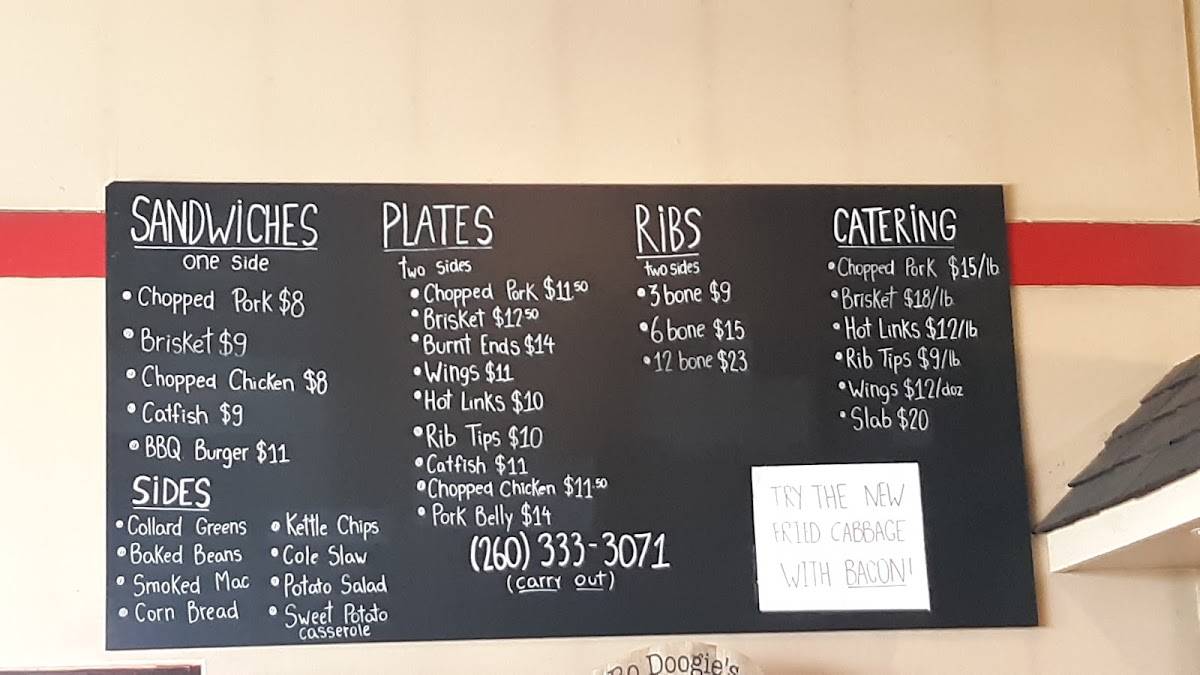 SANDWiCHES
one side
• Chopped Pork $8
• Brisket $9
• Chopped Chicken $8
• Catfish $9
• BBQ Burger $11
SiDES
• Collard Greens
• Baked Beans
• Smoked Mac
• Corn Bread
• Kettle Chips
• Cole Slaw
• Potato Salad
• Sweet Potato
casserole
PLATES
two sides
• Chopped Pork $11 50
• Brisket $12 50
• Burnt Ends $14
• Wings $11
• Hot Links $10
• Rib Tips $10
• Catfish $11
• Chopped Chicken $11.50
• Pork Belly $14
(260) 333-3071
(carry out)
RiBS
two sides
• 3 bone $9
• 6 bone $15
• 12 bone $23
CATERiNG
• Chopped Pork $15/lb
• Brisket $18/lb
• Hot Links $12/lb
• Rib Tips $9/lb
• Wings $12/doz
• Slab $20
TRY THE NEW
FRIED CABBAGE
WITH BACON!
Doogie's